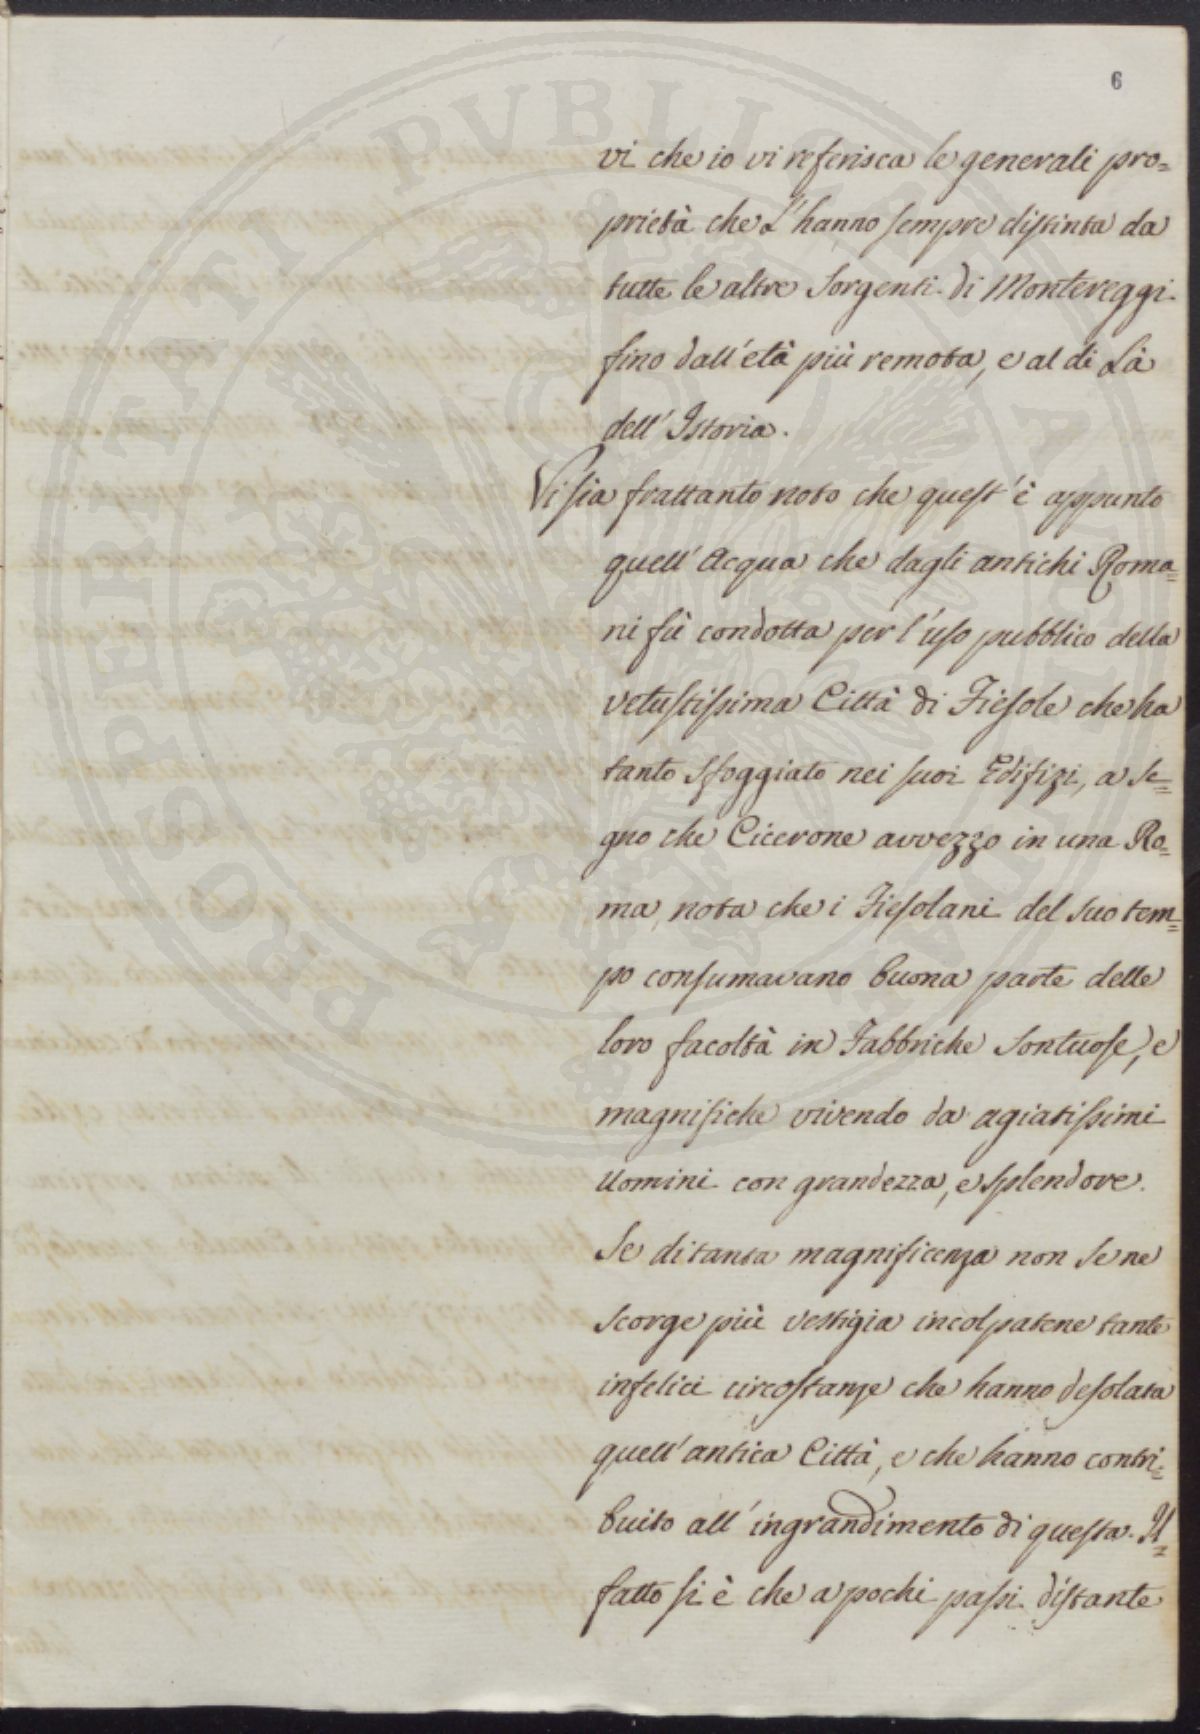 6
vi che io vi referisca le generali pro=
prietà che L'hanno sempre distinta da
tutte le altre Sorgenti di Montereggi
fino dall'età più remota, e al di Là
dell'Istoria.
Vi sia frattanto noto che quest'è appunto
quell'Acqua che dagli antichi Roma=
ni fù condotta per l'uso pubblico della
vetustissima Città di Fiesole che ha
tanto sfoggiato nei suoi Edifizi, a se=
gno che Cicerone avvezzo in una Ro=
ma, nota che i Fiesolani del suo tem=
po consumavano buona parte delle
loro facoltà in Fabbriche Sontuose, e
magnifiche vivendo da agiatissimi
Uomini con grandezza, e splendore.
Se di tanta magnificenza non se ne
scorge più vestigia incolpatene tante
infelici circostanze che hanno desolata
quell'antica Città, e che hanno contri=
buito all'ingrandimento di questa. Il
fatto si è che a pochi passi distante
PROSPERITATI PVBLICAE AVGENDAE